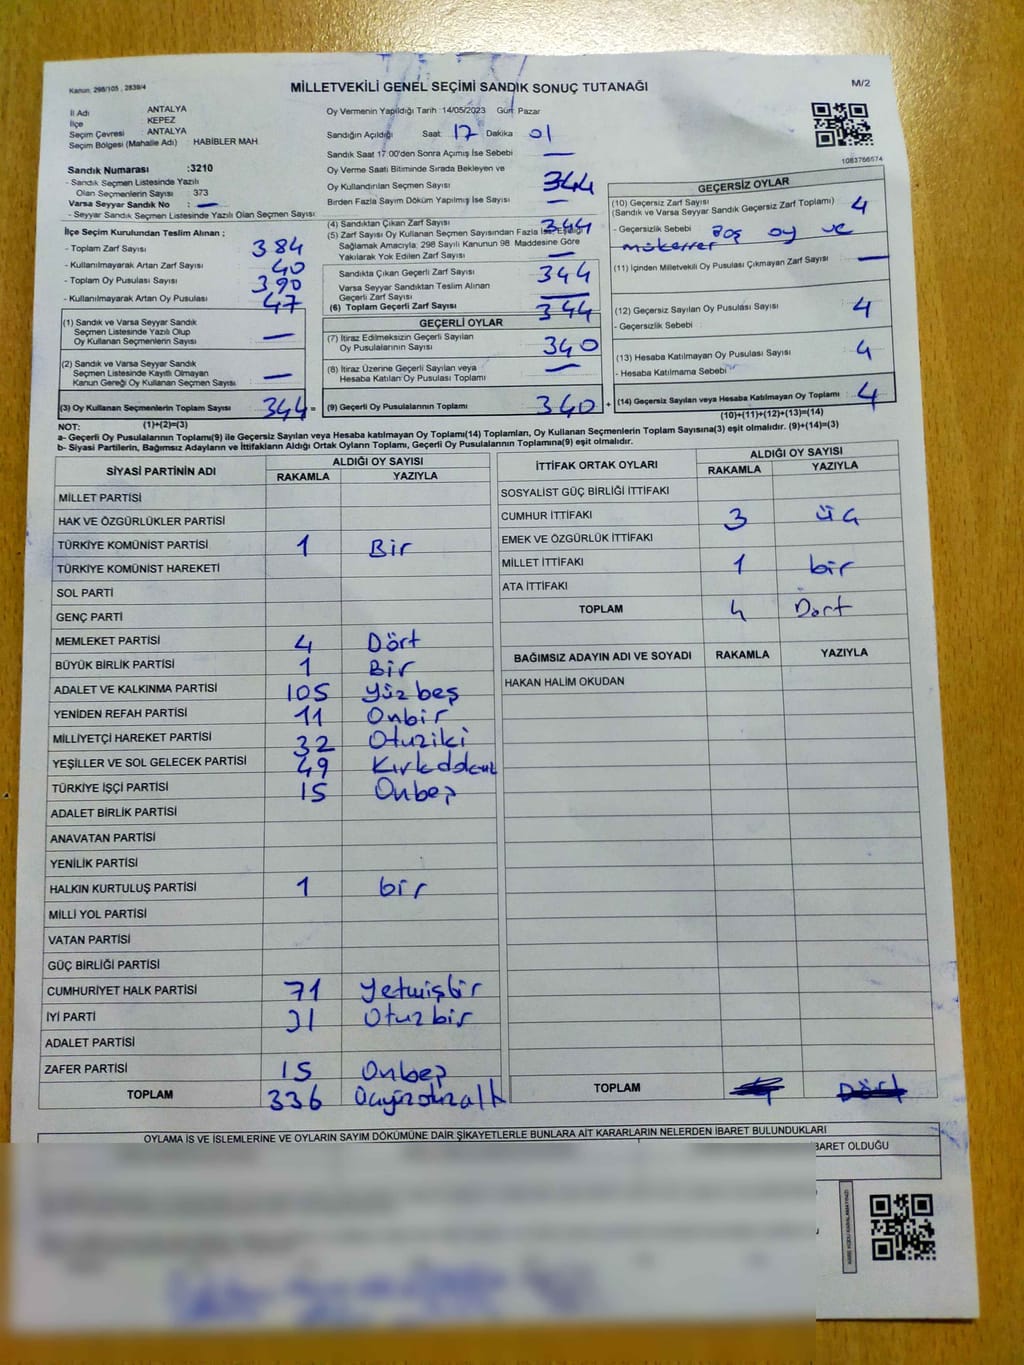 Kanun: 298/105 , 2839/4
MİLLETVEKİLİ GENEL SEÇİMİ SANDIK SONUÇ TUTANAĞI
M/2
İl Adı ANTALYA
İlçe : KEPEZ
Seçim Çevresi : ANTALYA
Seçim Bölgesi (Mahalle Adı) : HABİBLER MAH
Oy Vermenin Yapıldığı Tarih : 14/05/2023 Gün: Pazar
Sandığın Açıldığı Saat 17 Dakika 01
Sandık Saat 17:00'den Sonra Açımış İse Sebebi —
Oy Verme Saati Bitiminde Sırada Bekleyen ve
Oy Kullandırılan Seçmen Sayısı 344
Birden Fazla Sayım Döküm Yapılmış İse Sayısı —
1083766574
Sandık Numarası :3210
- Sandık Seçmen Listesinde Yazılı
Olan Seçmenlerin Sayısı : 373
Varsa Seyyar Sandık No : —
- Seyyar Sandık Seçmen Listesinde Yazılı Olan Seçmen Sayısı:
İlçe Seçim Kurulundan Teslim Alınan ;
- Toplam Zarf Sayısı 384
- Kullanılmayarak Artan Zarf Sayısı 40
- Toplam Oy Pusulası Sayısı 390
- Kullanılmayarak Artan Oy Pusulası 47
(1) Sandık ve Varsa Seyyar Sandık
Seçmen Listesinde Yazılı Olup
Oy Kullanan Seçmenlerin Sayısı —
(2) Sandık ve Varsa Seyyar Sandık
Seçmen Listesinde Kayıtlı Olmayan
Kanun Gereği Oy Kullanan Seçmen Sayısı —
(3) Oy Kullanan Seçmenlerin Toplam Sayısı 344 =
(1)+(2)=(3)
(4) Sandıktan Çıkan Zarf Sayısı 344
(5) Zarf Sayısı Oy Kullanan Seçmen Sayısından Fazla İse, Eşitliği
Sağlamak Amacıyla; 298 Sayılı Kanunun 98 Maddesine Göre
Yakılarak Yok Edilen Zarf Sayısı —
Sandıkta Çıkan Geçerli Zarf Sayısı 344
Varsa Seyyar Sandıktan Teslim Alınan
Geçerli Zarf Sayısı —
(6) Toplam Geçerli Zarf Sayısı 344
GEÇERLİ OYLAR
(7) İtiraz Edilmeksizin Geçerli Sayılan
Oy Pusulalarının Sayısı 340
(8) İtiraz Üzerine Geçerli Sayılan veya
Hesaba Katılan Oy Pusulası Toplamı —
(9) Geçerli Oy Pusulalarının Toplamı 340 +
GEÇERSİZ OYLAR
(10) Geçersiz Zarf Sayısı 4
(Sandık ve Varsa Seyyar Sandık Geçersiz Zarf Toplamı)
- Geçersizlik Sebebi Boş oy ve
mükerrer
(11) İçinden Milletvekili Oy Pusulası Çıkmayan Zarf Sayısı —
(12) Geçersiz Sayılan Oy Pusulası Sayısı 4
- Geçersizlik Sebebi
(13) Hesaba Katılmayan Oy Pusulası Sayısı 4
- Hesaba Katılmama Sebebi
(14) Geçersiz Sayılan veya Hesaba Katılmayan Oy Toplamı 4
(10)+(11)+(12)+(13)=(14)
NOT:
a- Geçerli Oy Pusulalarının Toplamı(9) ile Geçersiz Sayılan veya Hesaba katılmayan Oy Toplamı(14) Toplamları, Oy Kullanan Seçmenlerin Toplam Sayısına(3) eşit olmalıdır. (9)+(14)=(3)
b- Siyasi Partilerin, Bağımsız Adayların ve İttifakların Aldığı Ortak Oyların Toplamı, Geçerli Oy Pusulalarının Toplamına(9) eşit olmalıdır.
SİYASİ PARTİNİN ADI ALDIĞI OY SAYISI
RAKAMLA YAZIYLA
MİLLET PARTİSİ
HAK VE ÖZGÜRLÜKLER PARTİSİ
TÜRKİYE KOMÜNİST PARTİSİ 1 Bir
TÜRKİYE KOMÜNİST HAREKETİ
SOL PARTİ
GENÇ PARTİ
MEMLEKET PARTİSİ 4 Dört
BÜYÜK BİRLİK PARTİSİ 1 Bir
ADALET VE KALKINMA PARTİSİ 105 Yüz beş
YENİDEN REFAH PARTİSİ 11 Onbir
MİLLİYETÇİ HAREKET PARTİSİ 32 Otuziki
YEŞİLLER VE SOL GELECEK PARTİSİ 49
TÜRKİYE İŞÇİ PARTİSİ 15 Onbeş
ADALET BİRLİK PARTİSİ
ANAVATAN PARTİSİ
YENİLİK PARTİSİ
HALKIN KURTULUŞ PARTİSİ 1 bir
MİLLİ YOL PARTİSİ
VATAN PARTİSİ
GÜÇ BİRLİĞİ PARTİSİ
CUMHURİYET HALK PARTİSİ 71 Yetmişbir
İYİ PARTİ 31 Otuzbir
ADALET PARTİSİ
ZAFER PARTİSİ 15 Onbeş
TOPLAM 336
İTTİFAK ORTAK OYLARI ALDIĞI OY SAYISI
RAKAMLA YAZIYLA
SOSYALİST GÜÇ BİRLİĞİ İTTİFAKI
CUMHUR İTTİFAKI 3 üç
EMEK VE ÖZGÜRLÜK İTTİFAKI
MİLLET İTTİFAKI 1 bir
ATA İTTİFAKI
TOPLAM 4 Dört
BAĞIMSIZ ADAYIN ADI VE SOYADI RAKAMLA YAZIYLA
HAKAN HALİM OKUDAN
TOPLAM
OYLAMA İŞ VE İŞLEMLERİNE VE OYLARIN SAYIM DÖKÜMÜNE DAİR ŞİKAYETLERLE BUNLARA AİT KARARLARIN NELERDEN İBARET BULUNDUKLARI
İBARET OLDUĞU
KARE KODU KARALAMAYINIZ!